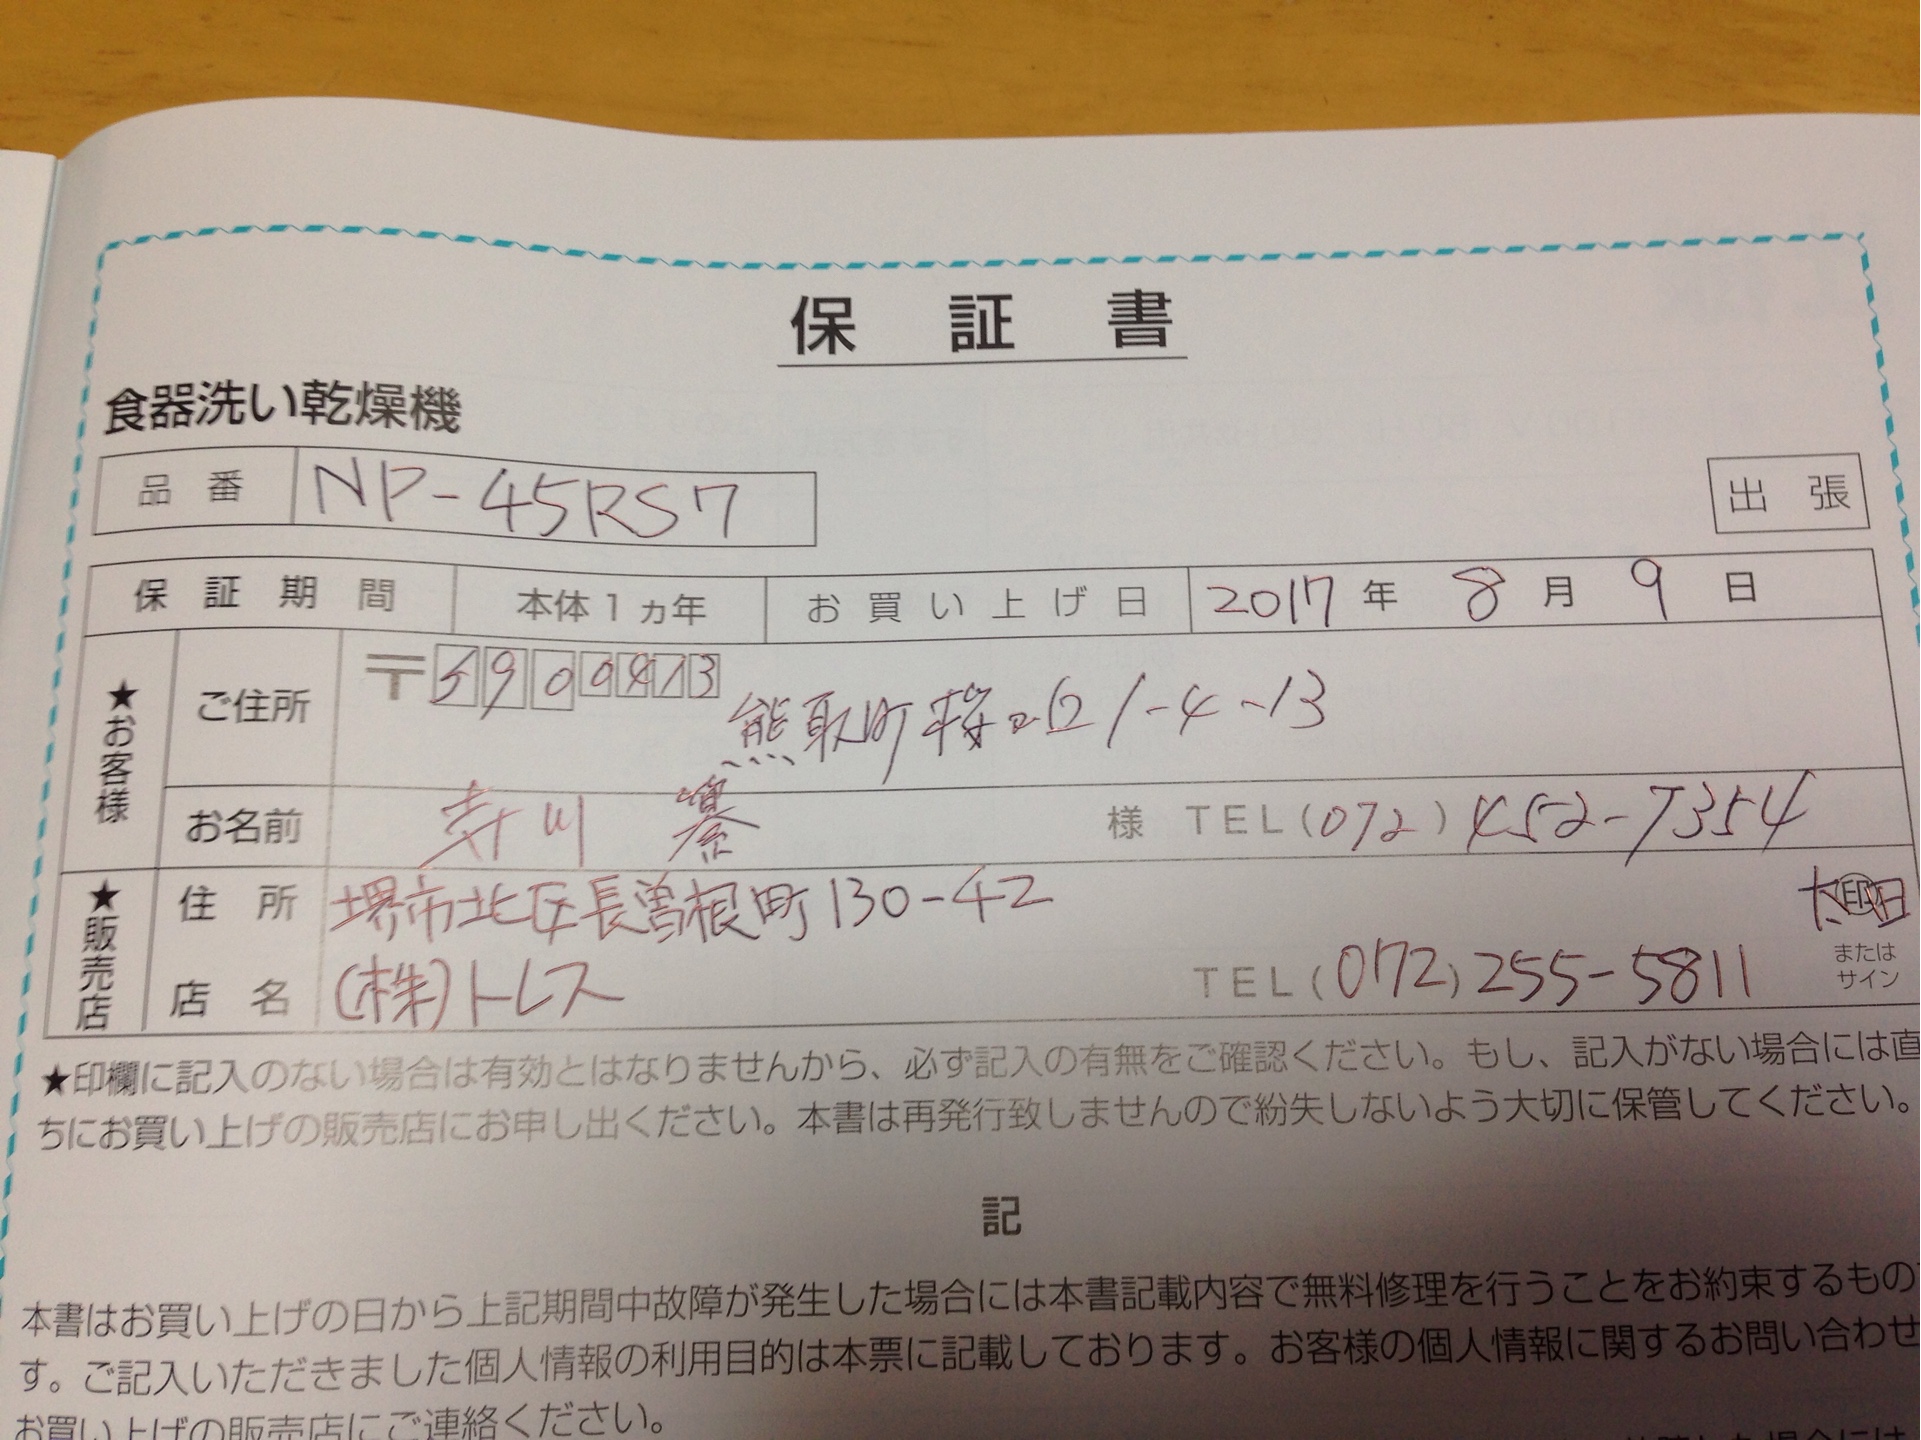 保証書
食器洗い乾燥機
品番 NP-45RS7
出張
保証期間 本体1ヵ年 お買い上げ日 2017年 8月 9日
★お客様
ご住所 〒5900413
熊取町桜が丘1-4-13
お名前 寺川 様 TEL(072)452-7354
★販売店
住所 堺市北区長曽根町130-42
太田
印
または
サイン
店名 (株)トレス TEL(072)255-5811
★印欄に記入のない場合は有効とはなりませんから、必ず記入の有無をご確認ください。もし、記入がない場合には直
ちにお買い上げの販売店にお申し出ください。本書は再発行致しませんので紛失しないよう大切に保管してください。
記
本書はお買い上げの日から上記期間中故障が発生した場合には本書記載内容で無料修理を行うことをお約束するもので
す。ご記入いただきました個人情報の利用目的は本票に記載しております。お客様の個人情報に関するお問い合わせ
お買い上げの販売店にご連絡ください。